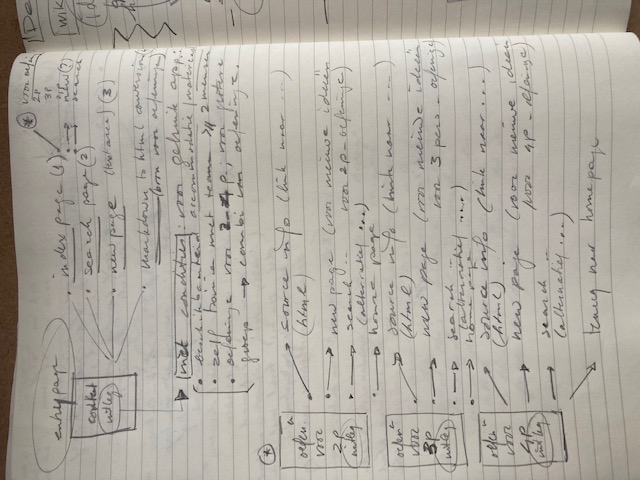 entrypage
content
uitleg
index page (1)
search page (2)
new page (3)
markdown to html conversion
(bron voor oefeningen)
* voor oefen
2P
3P
new (?)
search
met condities: voor gebruik app:
• accommodatie / materiaal
• zelf met team 2 mensen
• oefeninge voor 2-4 p, voor grotere
groep → combi van oefeninge.
*
oefen
voor
2P
uitleg
source info (link naar ...)
(html)
new page (voor nieuwe ideeën
voor 2p-oefeninge)
search
(alternatief ...)
home page
oefen
voor
3P
uitleg
source info (link naar ...)
(html)
new page (voor nieuwe ideeën
voor 3 pers-oefeninge)
search
(alternatief ...)
home page
oefen
voor
4P
uitleg
source info (link naar ...)
(html)
new page (voor nieuwe ideeën
voor 4p-oefeninge)
search
(alternatief ...)
terug naar homepage
De
wik